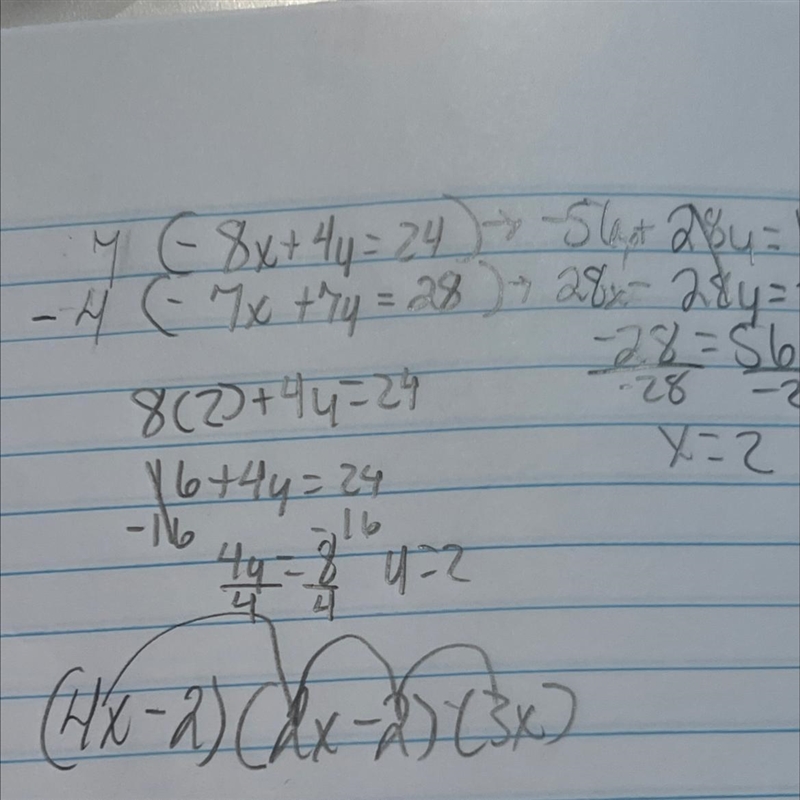 7 (-8x+4y=24) → -56x+ 28y=
-4 (-7x+7y=28) → 28x- 28y=
-28 = 56
-28 -2
8(2)+4y=24
x=2
16+4y=24
-16 -16
4y=8 y=2
4 4
(4x-2)(2x-2)(3x)